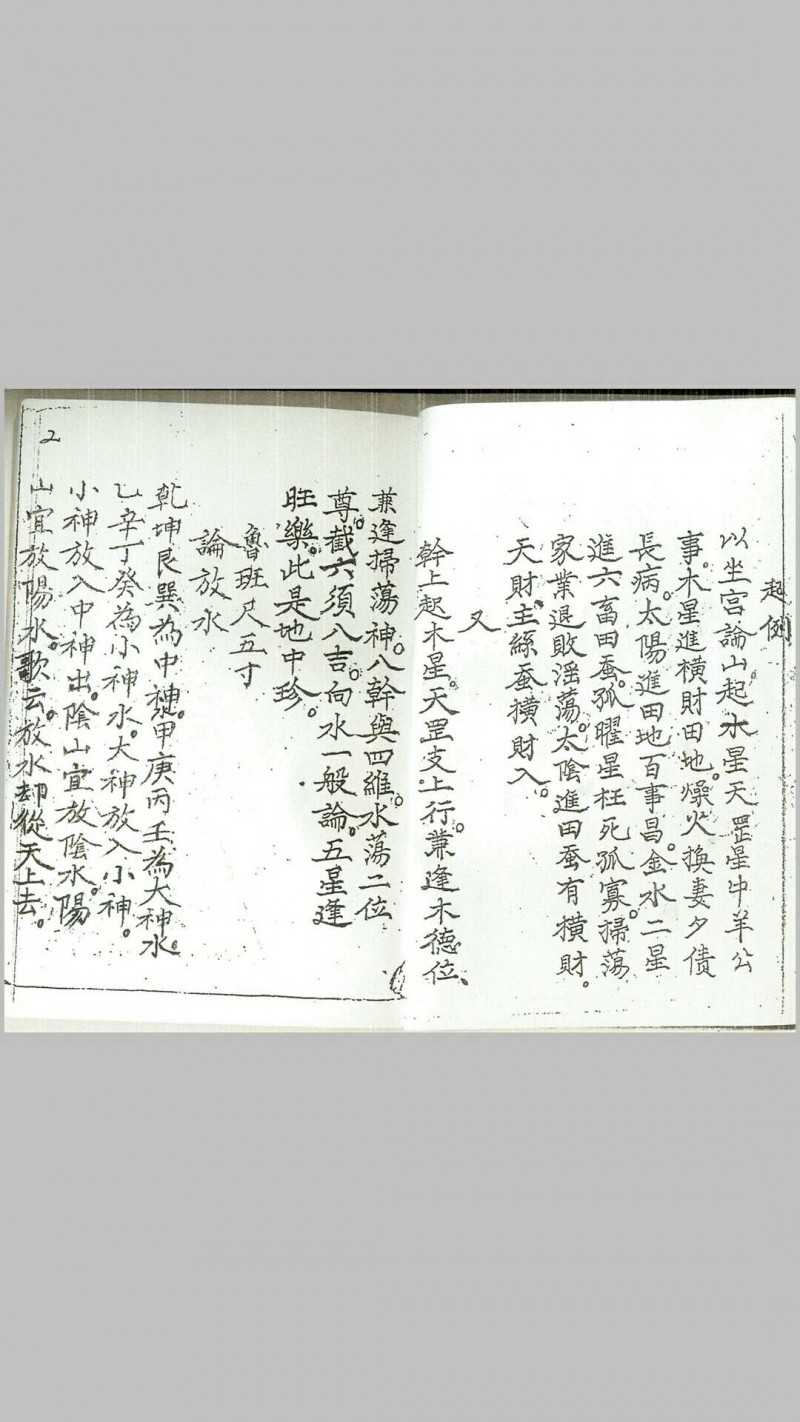 起例
以坐宫論山起水星天罡星中羊公
事。木星進横財田地。燥火換妻夕債
長病。太陽進田地百事昌。金水二星
進六畜田蚕。孤曜星枉死孤寡。掃荡
家業退敗淫荡。太陰進田蚕有横財。
天財。主絲蚕横財入。
又
幹上起木星。天罡支上行。兼逢木德位、
兼逢掃荡神。八幹與四維。水荡二位
尊。截六須八吉。向水一般論。五星逢
旺樂。此是地中珍。
魯班尺五寸
論放水
乾坤艮巽為中神。甲庚丙壬為大神水。
乙辛丁癸為小神水。大神放入小神。
小神放入中神出。陰山宜放陰水。陽
山宜放陽水。歌云。放水却從天上去。
2